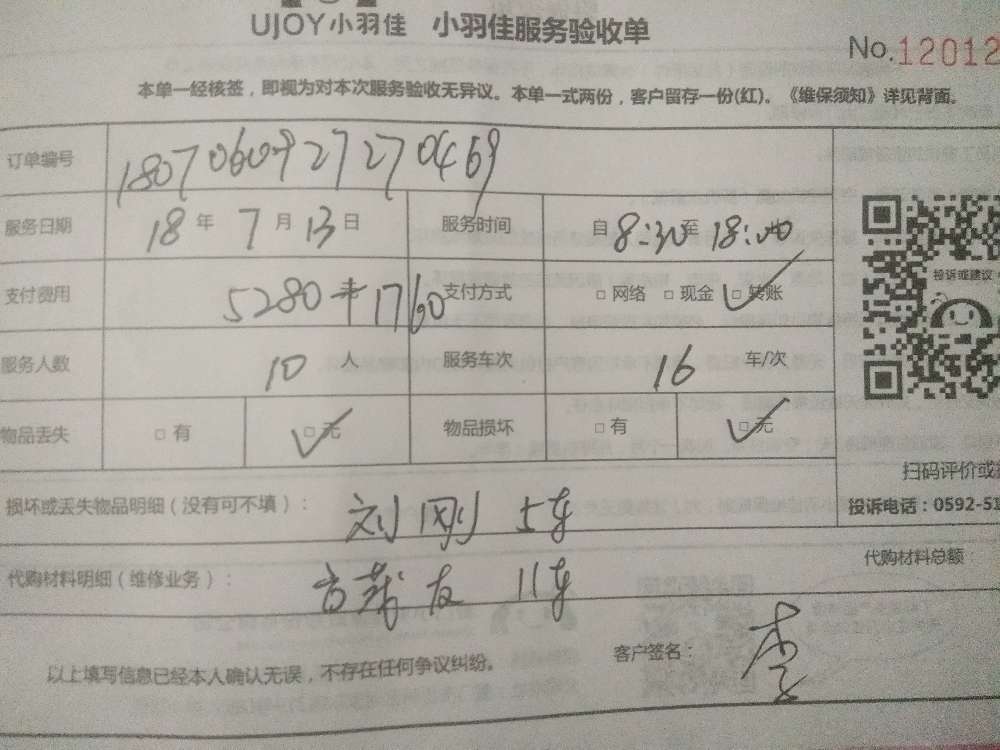 UJOY小羽佳 小羽佳服务验收单
No.12012
本单一经核签，即视为对本次服务验收无异议。本单一式两份，客户留存一份(红)。《维保须知》详见背面。
订单编号 1807060927270469
服务日期 18 年 7 月 13 日 服务时间 自 8:30 至 18:00
支付费用 5280+1760 支付方式 □网络 □现金 □转账
投诉或建议
服务人数 10 人 服务车次 16 车/次
物品丢失 □有 □无 物品损坏 □有 □无
扫码评价或
损坏或丢失物品明细（没有可不填）： 刘刚 5车
投诉电话：0592-51
代购材料明细（维修业务）： 友 11车
代购材料总额
以上填写信息已经本人确认无误，不存在任何争议纠纷。 客户签名：